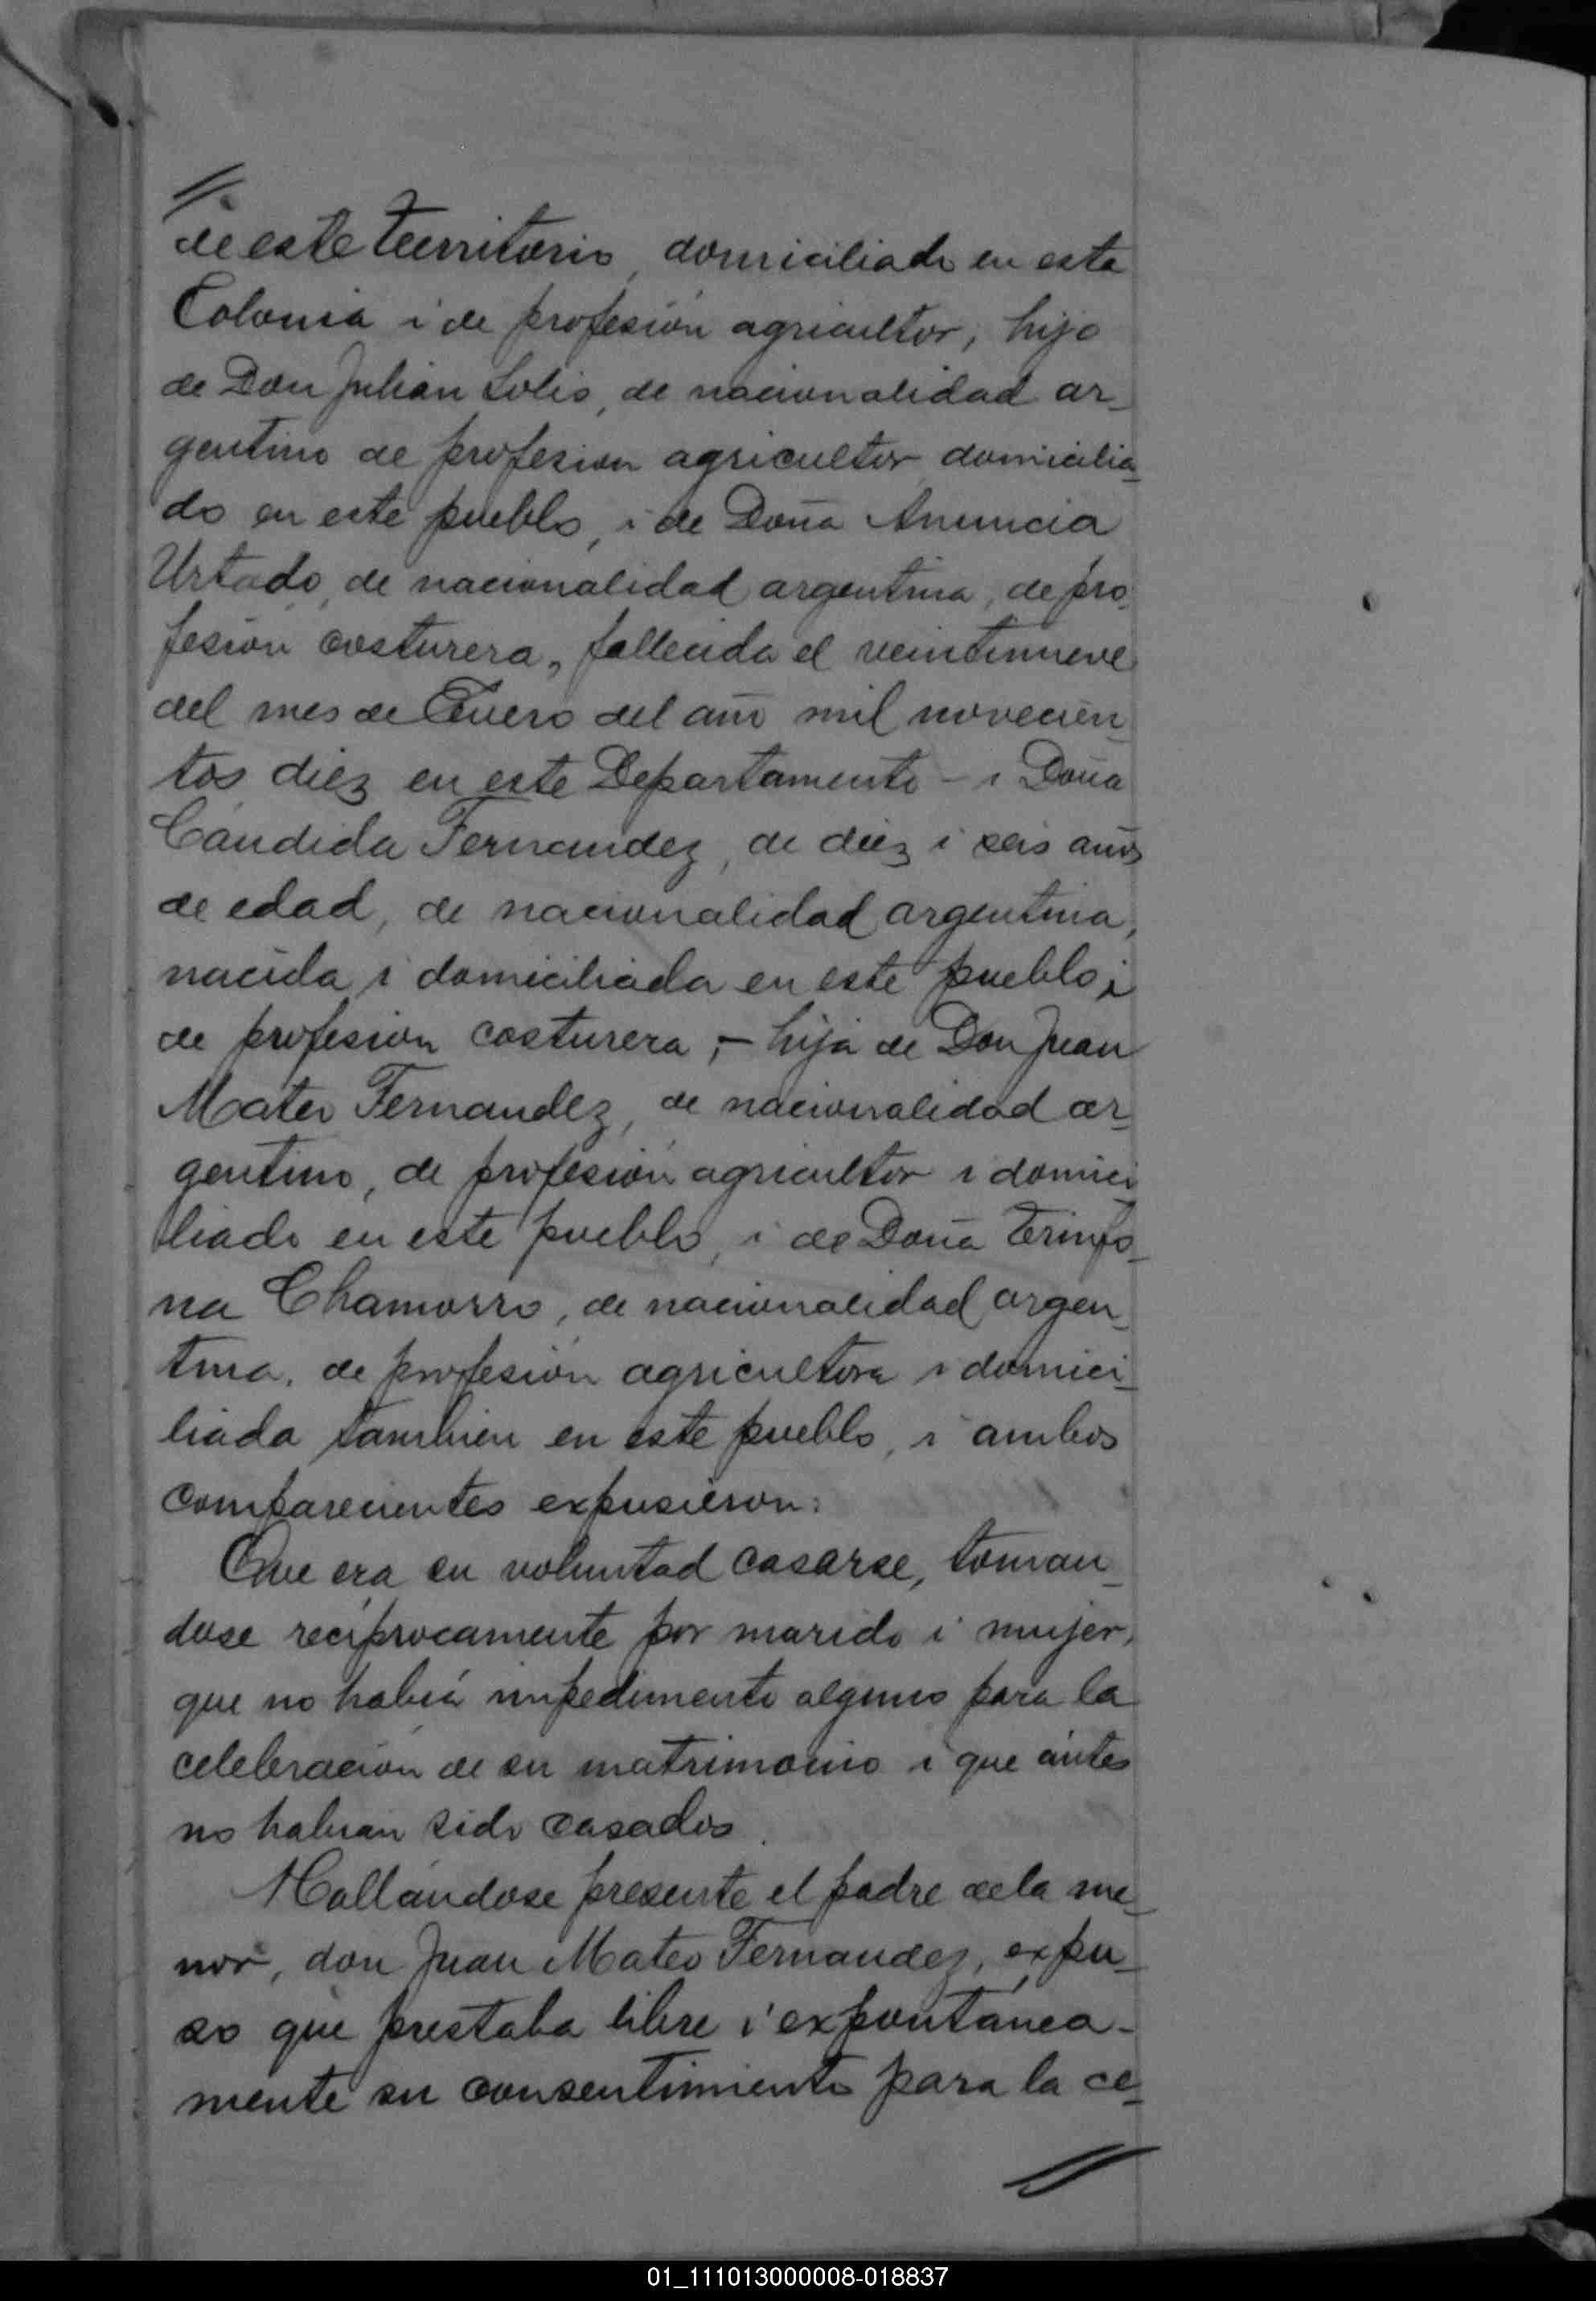 de este territorio, domiciliado en esta
Colonia i de profesión agricultor, hijo
de Don Julian Solis, de nacionalidad ar-
gentino de profesion agricultor domicilia-
do en este pueblo, i de Doña Anuncia
Urtado, de nacionalidad argentina, de pro-
fesion costurera, fallecida el veintinueve
del mes de Enero del año mil novecien-
tos diez en este Departamento - i Doña
Cándida Fernandez, de diez i seis años
de edad, de nacionalidad argentina,
nacida i domiciliada en este pueblo i
de profesion costurera, - hija de Don Juan
Mateo Fernandez, de nacionalidad ar-
gentino, de profesión agricultor i domici-
liado en este pueblo, i de Doña
na Chamorro, de nacionalidad argen-
tina, de profesión agricultora i domici-
liada tambien en este pueblo, i ambos
comparecientes expusieron:
Que era su voluntad casarse, toman-
dose recíprocamente por marido i mujer,
que no había impedimento alguno para la
celebración de su matrimonio i que ántes
no habian sido casados.
Hallándose presente el padre de la me-
nor, don Juan Mateo Fernandez, expu-
so que prestaba libre i expontánea-
mente su consentimiento para la ce-
01_111013000008-018837